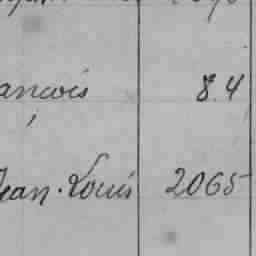 ancois 8.4
ean-Louis 2065